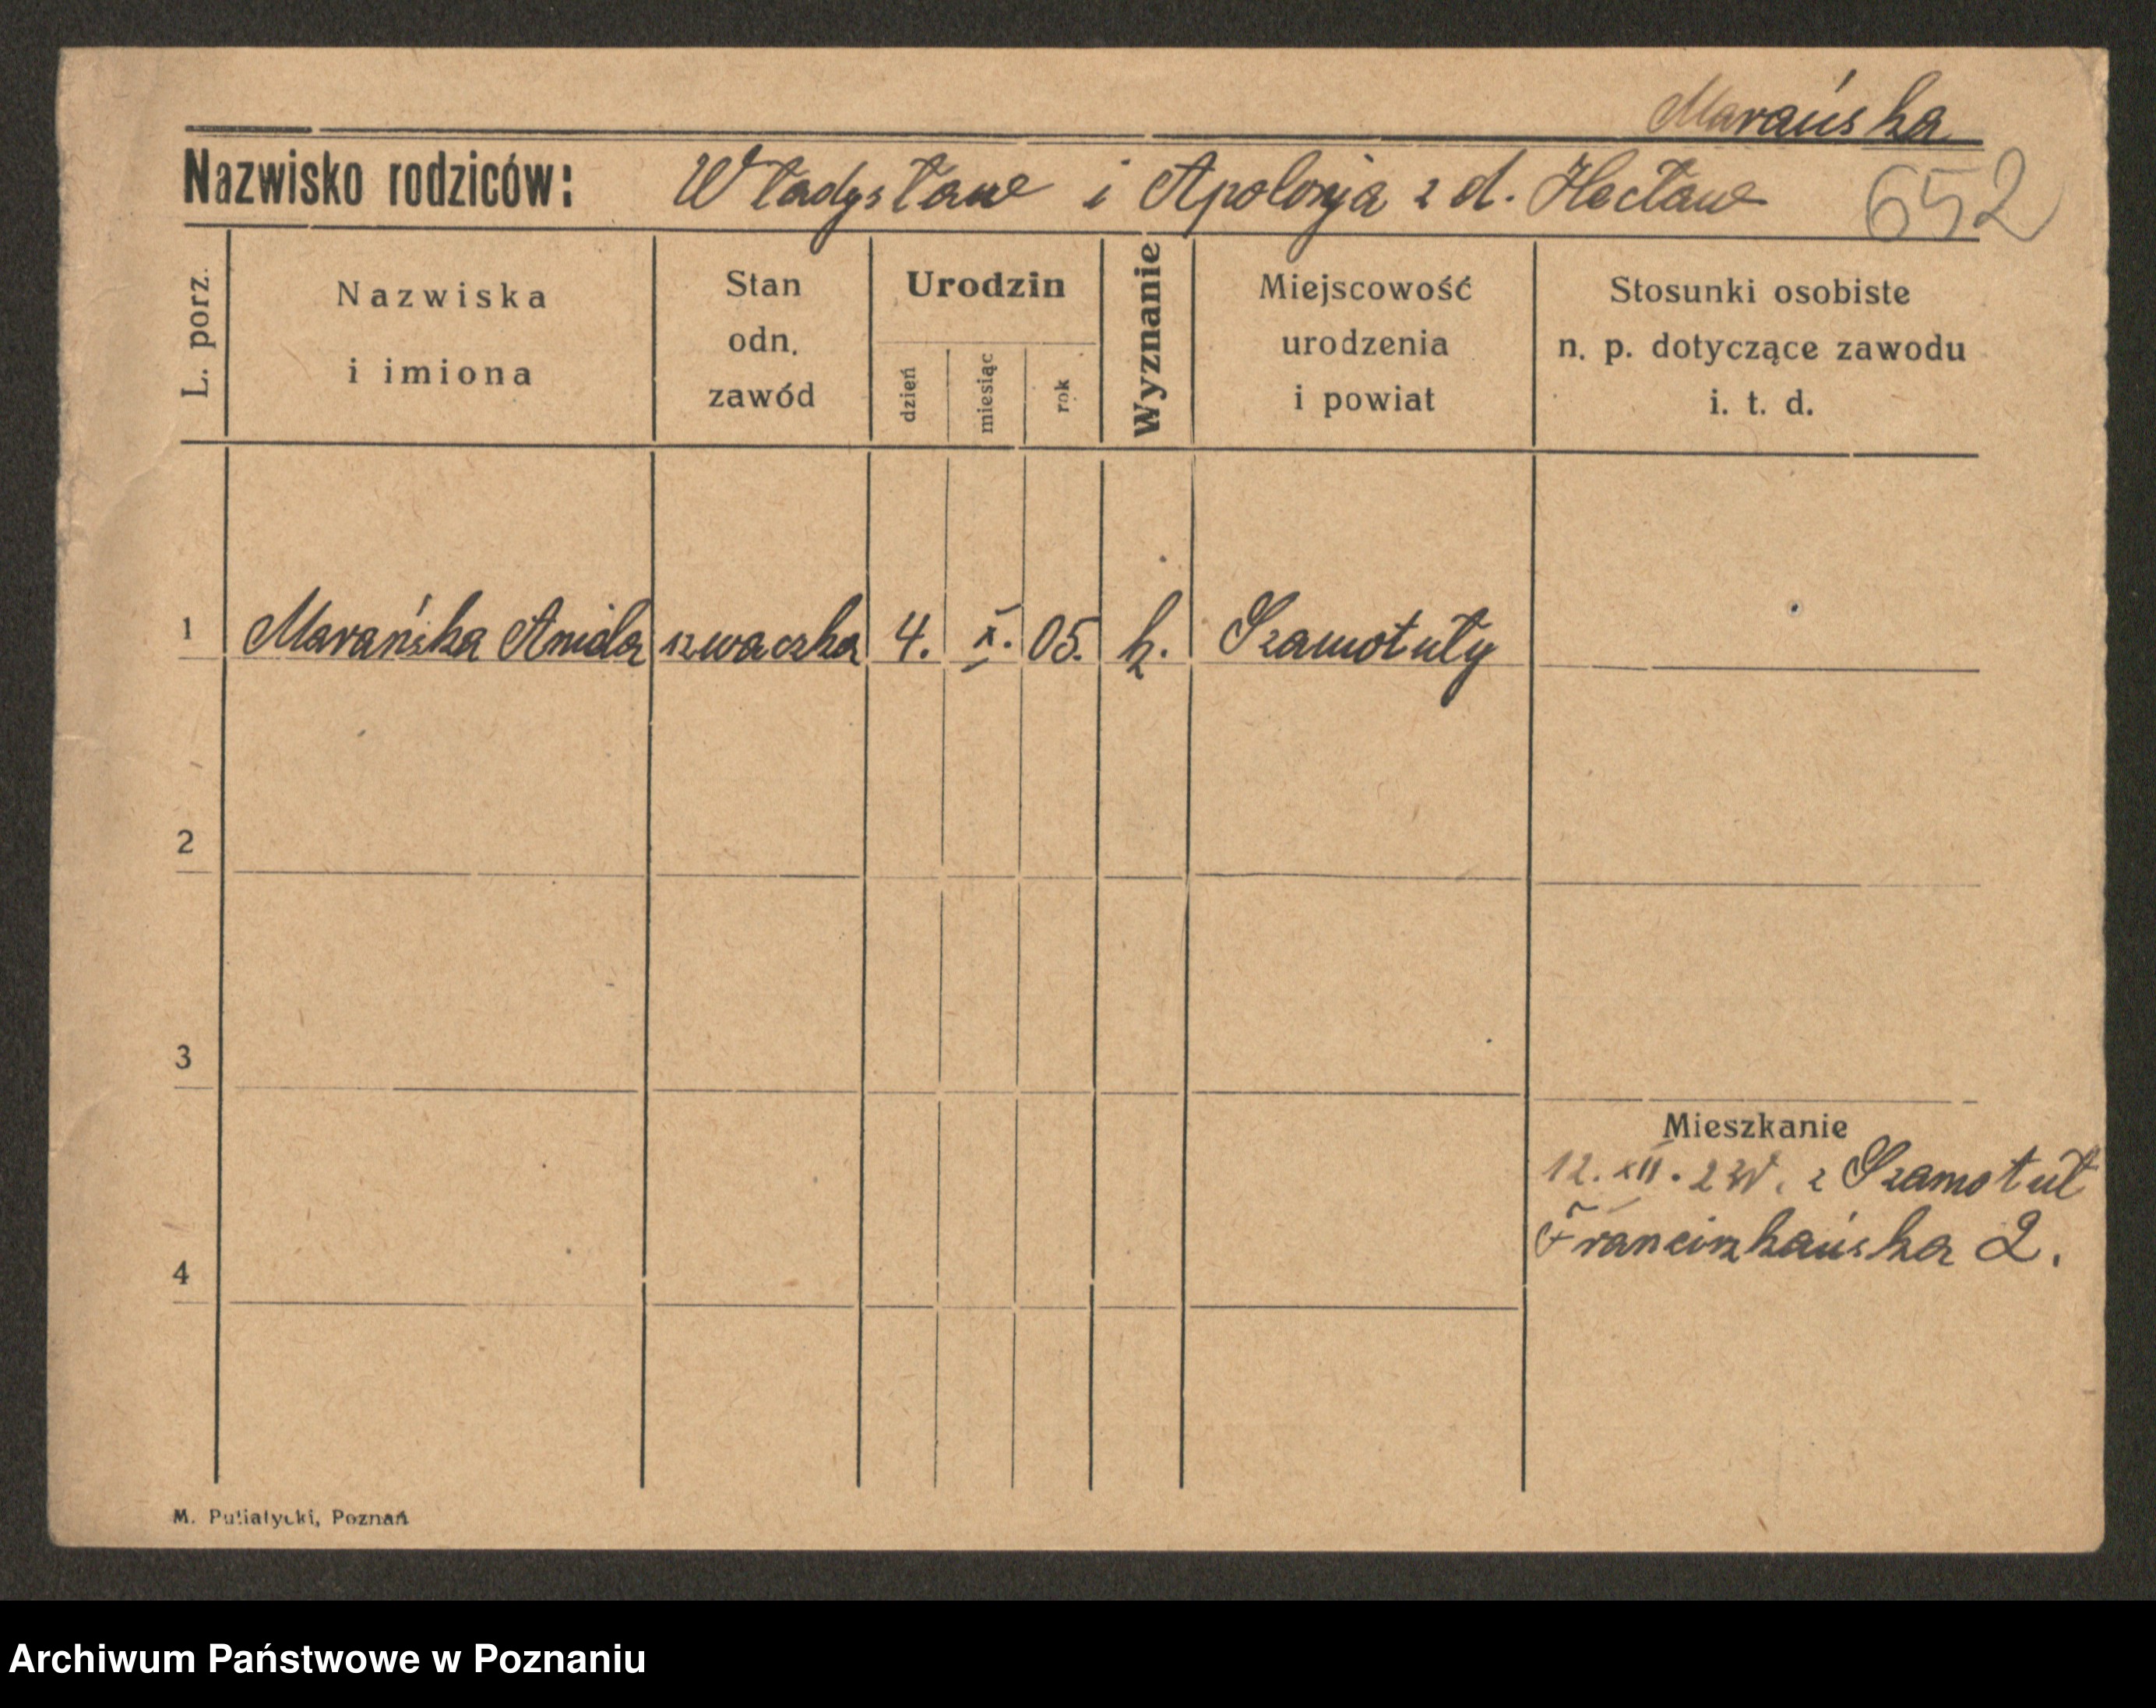 Marańska
Nazwisko rodziców: Władysław i Apolonja z d. Hecław 652
L. porz.
Nazwiska i imiona
Stan odn. zawód
Urodzin
dzień miesiąc rok
Wyznanie
Miejscowość urodzenia i powiat
Stosunki osobiste n. p. dotyczące zawodu i. t. d.
1 Marańska Aniela szwaczka 4. X. 05. k. Szamotuły
2
3
Mieszkanie
12. XII. z Szamotuł
Franciszkańska 2.
4
M. Putiatycki, Poznań
Archiwum Państwowe w Poznaniu